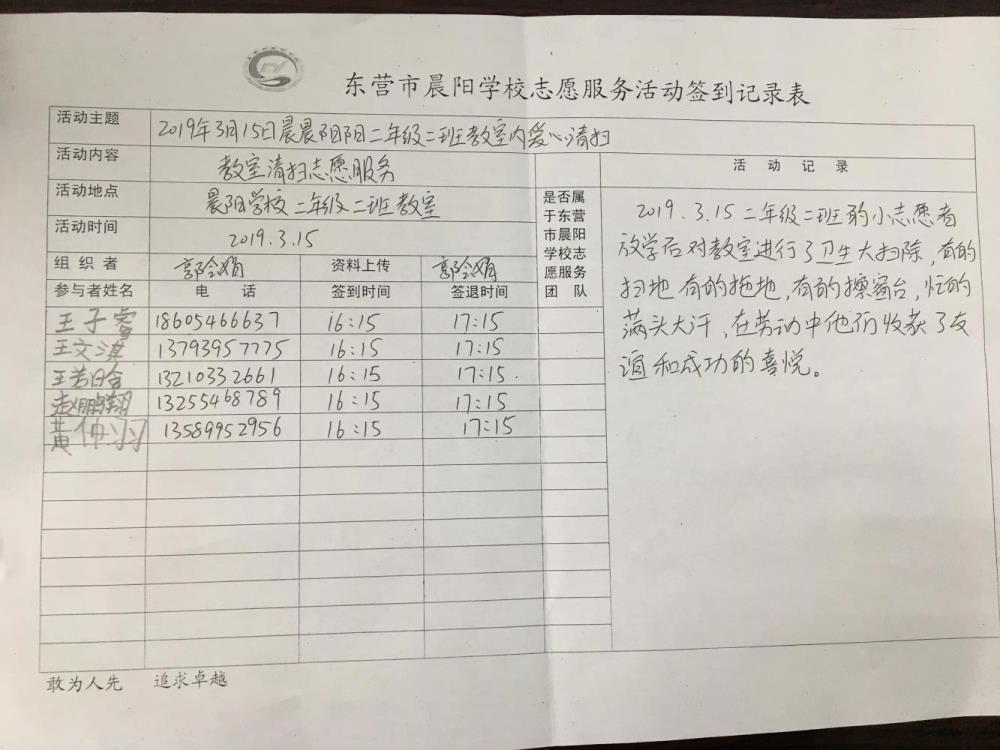 东营市晨阳学校志愿服务活动签到记录表
活动主题 2019年3月15日晨晨阳阳二年级二班教室内爱心清扫
活动内容 教室清扫志愿服务
活动地点 晨阳学校二年级二班教室
活动时间 2019.3.15
组织者 郭会娟 资料上传 郭会娟
参与者姓名 电话 签到时间 签退时间
王子睿 18605466637 16:15 17:15
王文淇 13793957775 16:15 17:15
王若晗 13210332661 16:15 17:15.
赵鹏翔 13255468789 16:15 17:15
黄仲羽 13589952956 16:15 17:15
是否属
于东营
市晨阳
学校志
愿服务
团队
活动记录
2019.3.15二年级二班的小志愿者
放学后对教室进行了卫生大扫除,有的
扫地 有的拖地,有的擦窗台,忙的
满头大汗,在劳动中他们收获了友
谊和成功的喜悦。
敢为人先 追求卓越